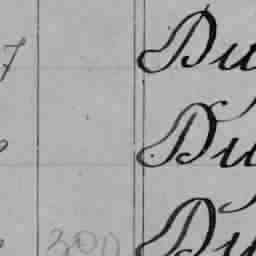 7 Du
Du
300 Du